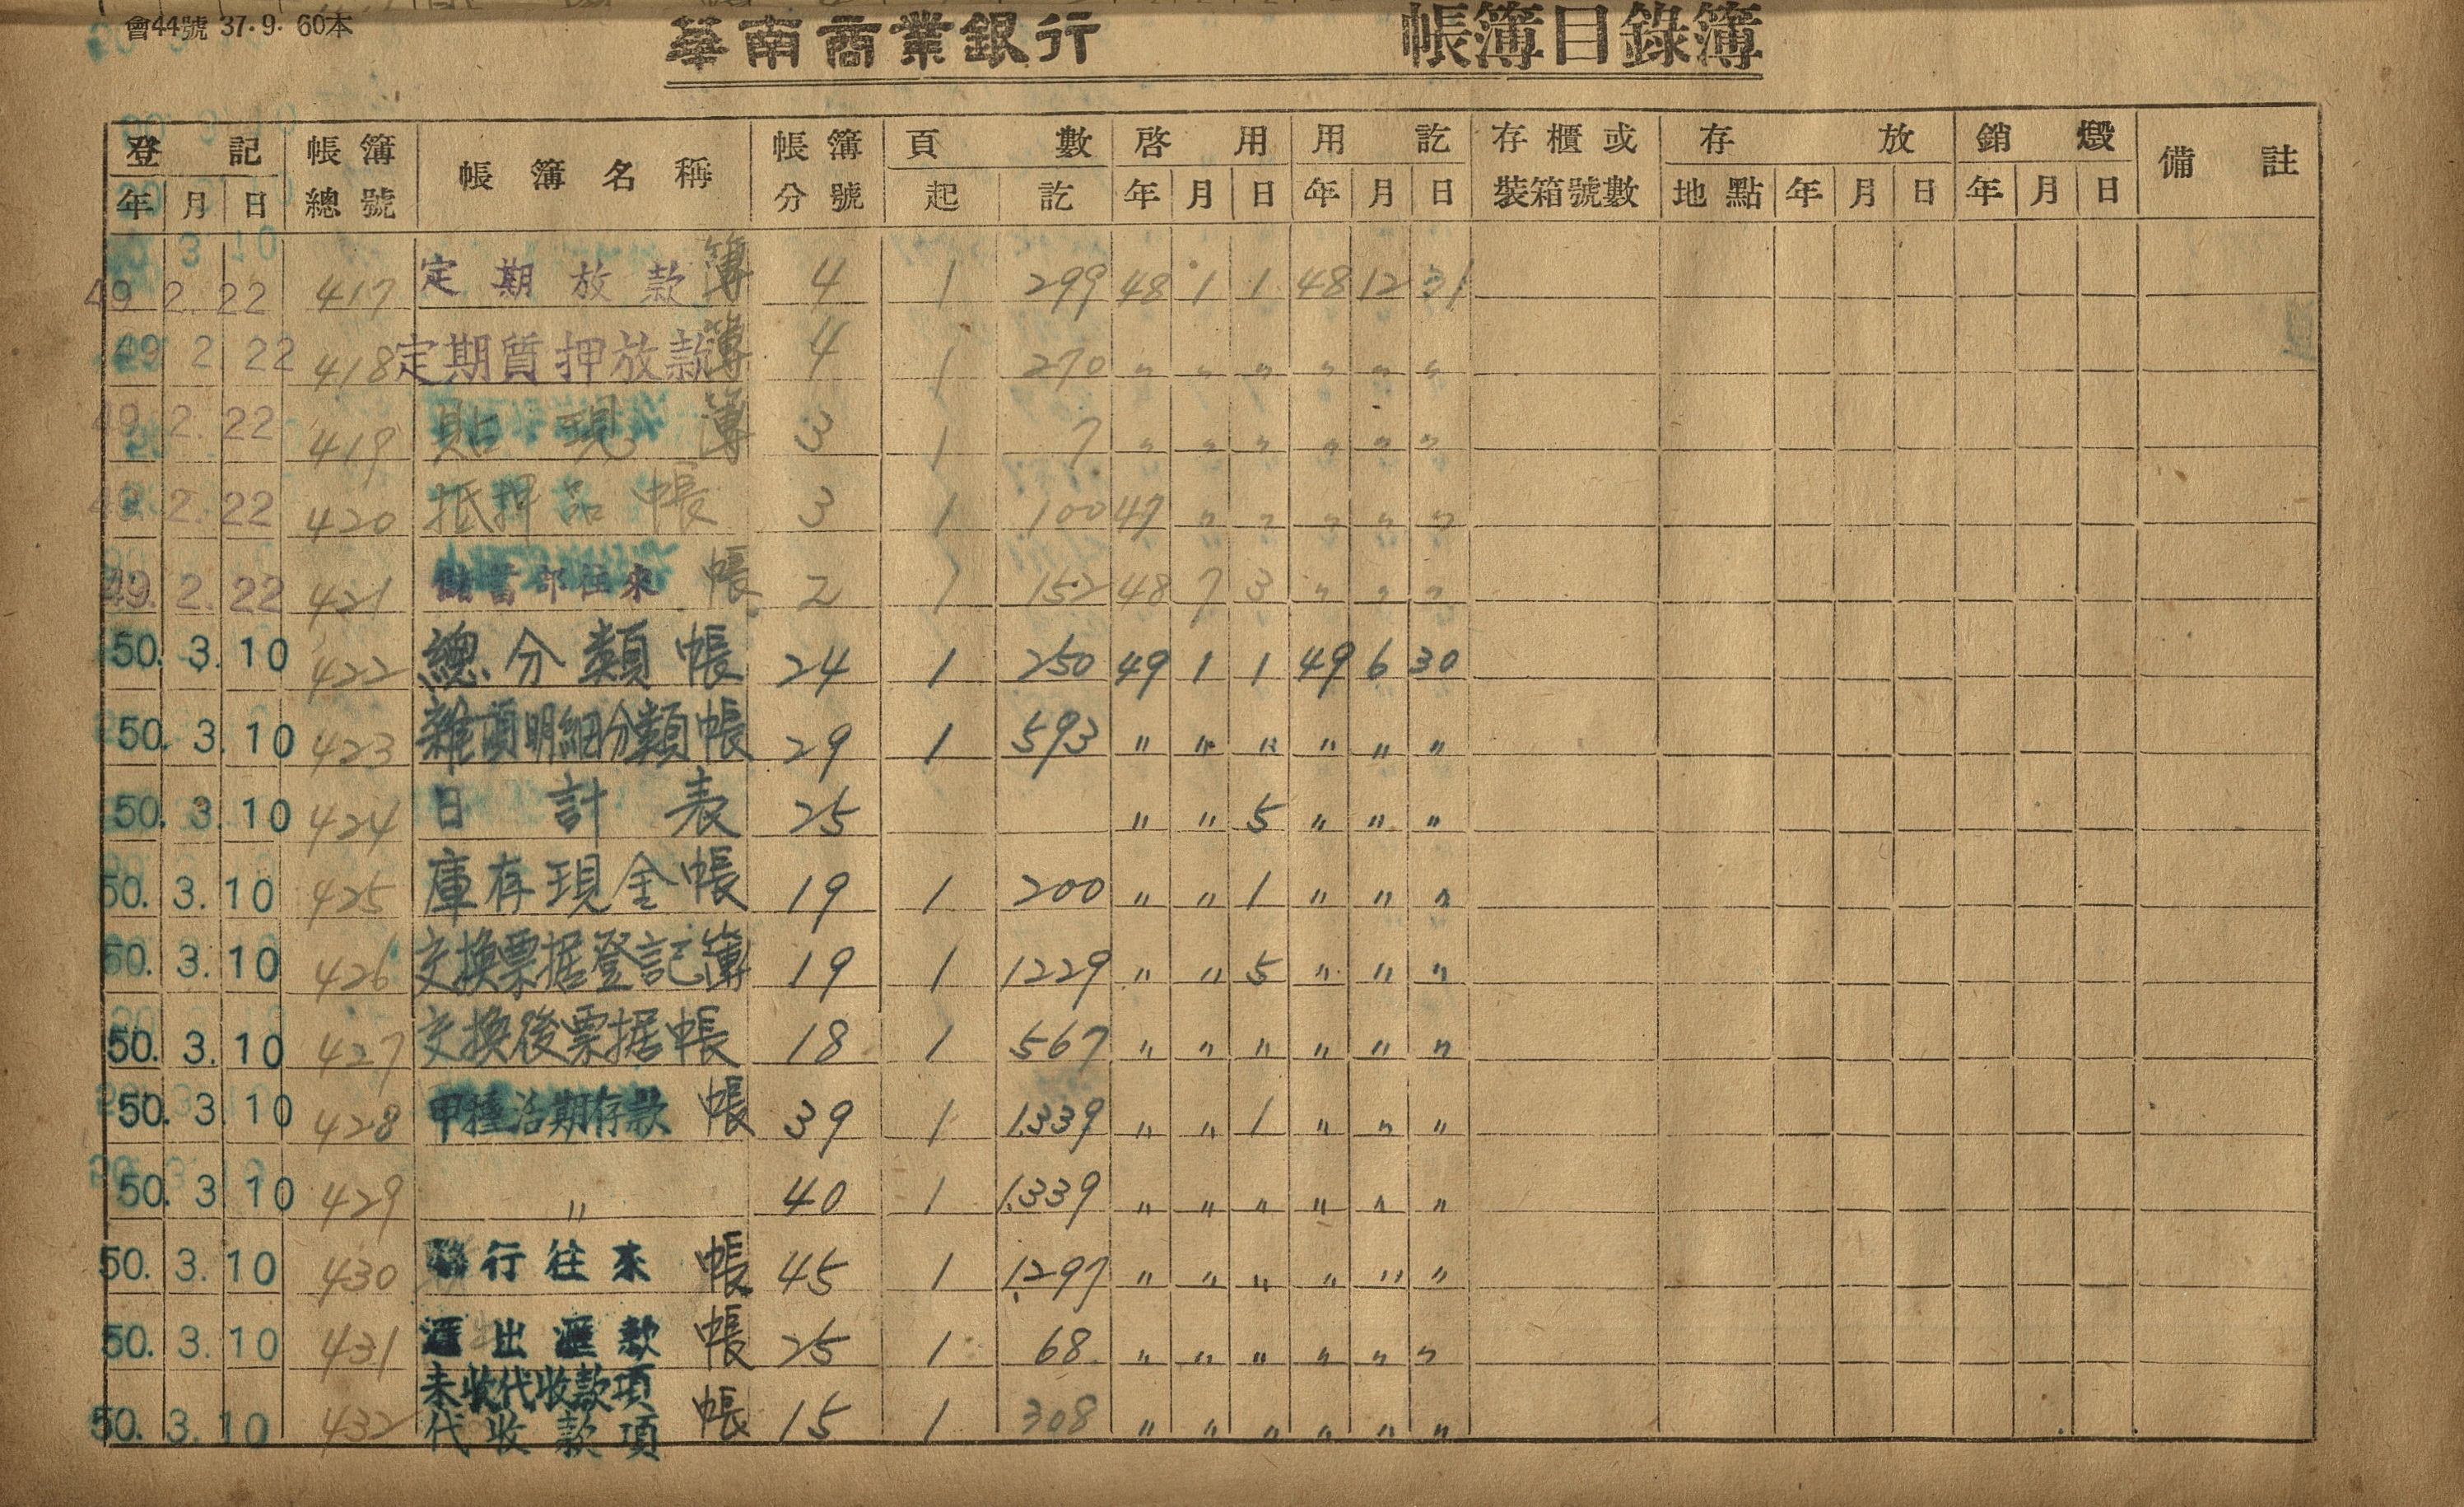 會44號 37.9. 60本
華南商業銀行 帳簿目錄簿
登記 帳簿 帳簿名稱 帳簿 頁數 啓用 用訖 存櫃或 存放 銷燬 備註
年 月 日 總號 分號 起 訖 年 月 日 年 月 日 裝箱號數 地點 年 月 日 年 月 日
49 2. 22 417 定期放款簿 4 1 299 48 1 1 48 12 31
49 2 22 418 定期質押放款簿 4 1 270 〃 〃 〃 〃 〃 〃
49 2. 22 419 貼現簿 3 1 7 〃 〃 〃 〃 〃 〃
49. 2. 22 420 抵押品帳 3 1 100 47 〃 〃 〃 〃 〃
49. 2. 22 421 儲蓄部往來帳 2 1 152 48 7 3 〃 〃 〃
50. 3. 10 422 總分類帳 24 1 250 49 1 1 49 6 30
50. 3. 10 423 雜項明細分類帳 29 1 593 〃 〃 〃 〃 〃 〃
50. 3. 10 424 日計表 25 〃 〃 5 〃 〃 〃
50. 3. 10 425 庫存現金帳 19 1 200 〃 〃 1 〃 〃 〃
50. 3. 10 426 交換票据登記簿 19 1 1229 〃 〃 5 〃 〃 〃
50. 3. 10 427 交換後票据帳 18 1 567 〃 〃 〃 〃 〃 〃
50. 3. 10 428 甲種活期存款帳 39 1 1.339 〃 〃 1 〃 〃 〃
50. 3. 10 429 〃 40 1 1.339 〃 〃 〃 〃 〃 〃
50. 3. 10 430 行往來帳 45 1 1.297 〃 〃 〃 〃 〃 〃
50. 3. 10 431 匯出匯款帳 25 1 68 〃 〃 〃 〃 〃 〃
未收代收款項
50. 3. 10 432 代收款項帳 15 1 308 〃 〃 〃 〃 〃 〃